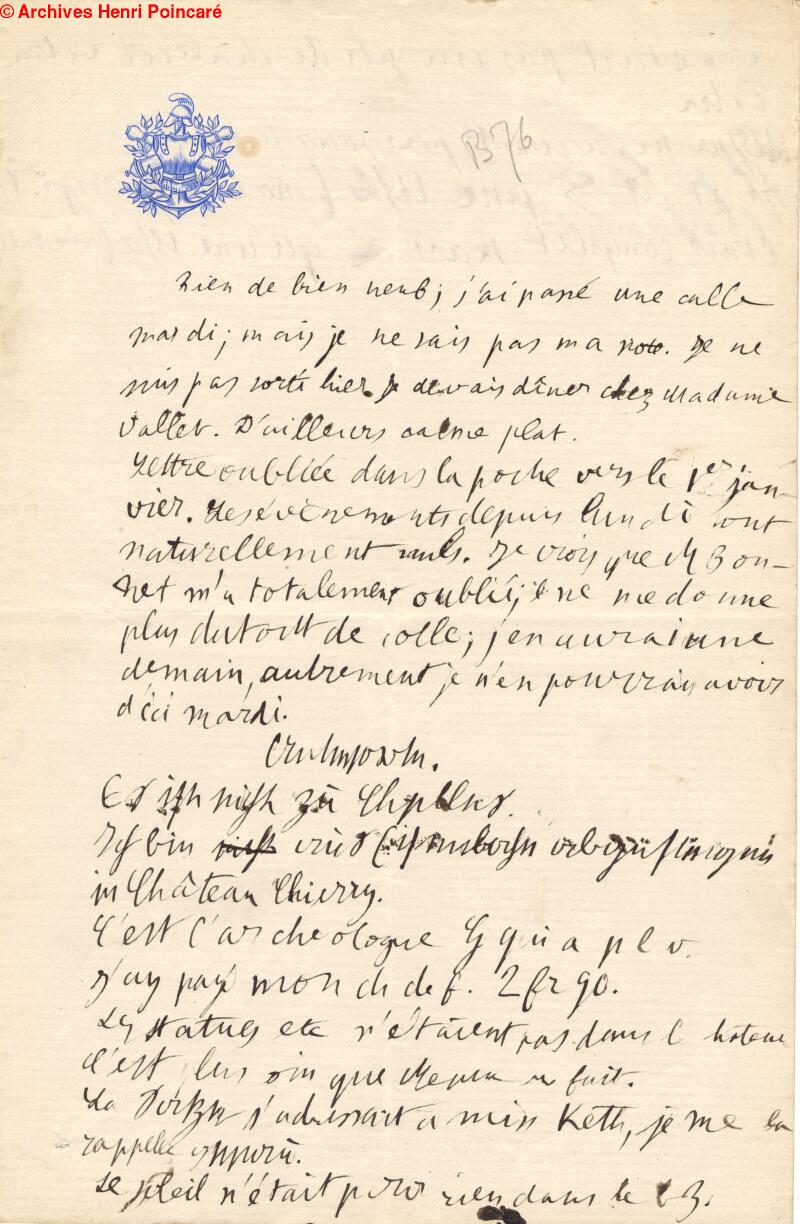 © Archives Henri Poincaré
B 76
Rien de bien neuf; j'ai passé une colle
mardi; mais je ne sais pas ma note. Je ne
suis pas sorti hier. Je devais dîner chez Madame
Vallet. D'ailleurs calme plat.
Lettre oubliée dans la poche vers le 1er jan-
vier. Les évènements depuis lundi sont
naturellement nuls. Je crois que M Bon-
net m'a totalement oublié; il ne me donne
plus du tout de colle; j'en aurai une
demain, autrement je n'en pourrais avoir
d'ici mardi.
Antworten.
Es ist nicht zu
Ich bin nicht aus
in Château Thierry.
C'est l'archéologue G qui a p l v.
J'ay payé mon ch de f. 2 fr 90.
Les statues etc n'étaient pas dans l
c'est plus loin que fait.
La s'adressait a miss Keth, je me la
rappelle
Le soleil n'était pour rien dans le